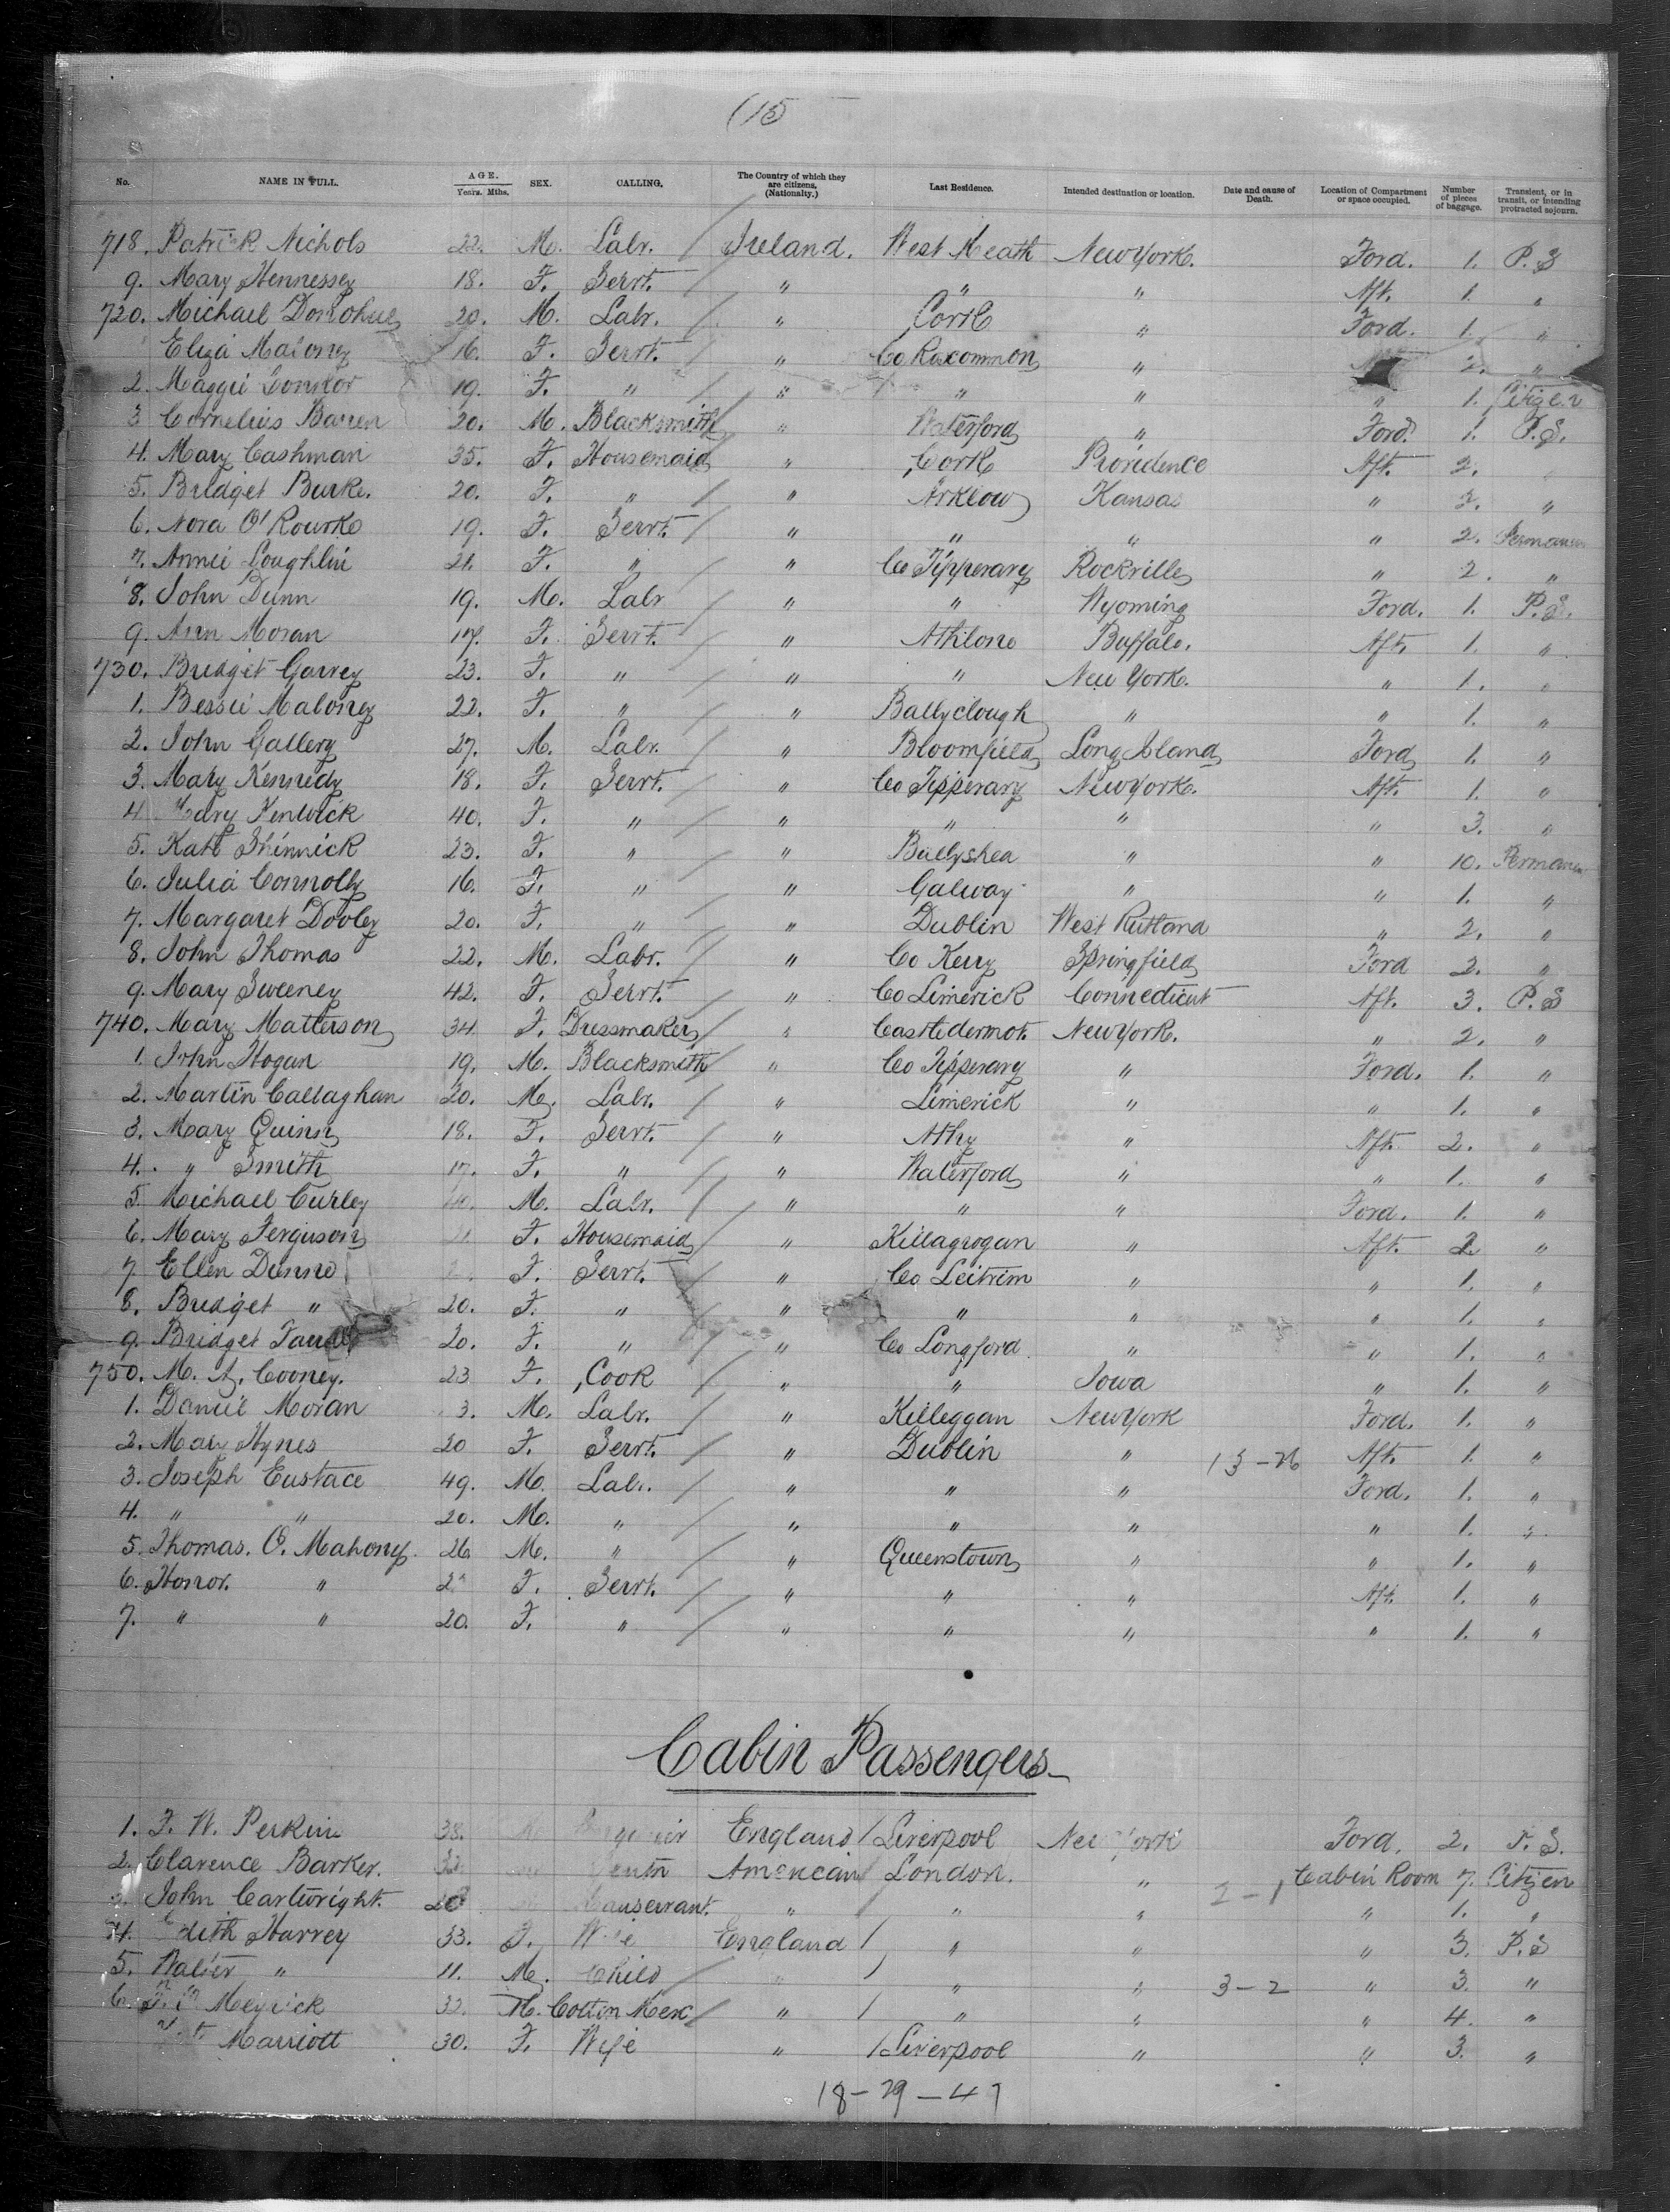 (15
No. NAME IN FULL. AGE. Years. Mths. SEX. CALLING. The Country of which they are citizens. (Nationality.) Last Residence. Intended destination or location. Date and cause of Death. Location of Compartment or space occupied. Number of pieces of baggage. Transient, or in transit, or intending protracted sojourn.
718. Patrick Nichols 22. M. Labr. Ireland. West Meath New York. Ford. 1. P.S
9. Mary Hennessey 18. F. Servt. " " " Aft. 1. "
720. Michael Donohue 20. M. Labr. " Cork " Ford. 1. "
Eliza Maloney 16. F. Servt. " Co Roscommon " 2. "
2. Maggie Connor 19. F. " " " " " 1. Citizen
3 Cornelius Barren 20. M. Blacksmith " Waterford " Ford. 1. P.S.
4. Mary Cashman 35. F. Housemaid " Cork Providence Aft. 2. "
5. Bridget Burke. 20. F. " " Arklow Kansas " 3. "
6. Nora O'Rourke 19. F. Servt. " " " " 2. Permanen
7. Annie Loughlin 21. F. " " Co Tipperary Rockville " 2. "
8. John Dunn 19. M. Labr " " Wyoming Ford. 1. P.S.
9. Ann Moran 17. F. Servt. " Athlone Buffalo. Aft. 1. "
730. Bridget Garvey 23. F. " " " New York. " 1. "
1. Bessie Maloney 22. F. " " Ballyclough " " 1. "
2. John Gallery 27. M. Labr. " Bloomfield Long Island Ford 1. "
3. Mary Kennedy 18. F. Servt. " Co Tipperary New York. Aft. 1. "
4 Mary Fenwick 40. F. " " " " " 3. "
5. Kate Shinnick 23. F. " " Ballyshea " " 10. Permanen
6. Julia Connolly 16. F. " " Galway " " 1. "
7. Margaret Dooley 20. F. " " Dublin West Rutland " 2. "
8. John Thomas 22. M. Labr. " Co Kerry Springfield Ford 2. "
9. Mary Sweeney 42. F. Servt. " Co Limerick Connecticut Aft. 3. P.S
740. Mary Matterson 34. F. Dressmaker " Castledermot. New York. " 2. "
1. John Hogan 19. M. Blacksmith " Co Tipperary " Ford. 1. "
2. Martin Callaghan 20. M. Labr. " Limerick " " 1. "
3. Mary Quinn 18. F. Servt. " Athy " Aft. 2. "
4. " Smith 17. F. " " Waterford " " 1. "
5. Michael Curley M. Labr. " " " Ford. 1. "
6. Mary Ferguson F. Housemaid " Killagrogan " Aft. 2 "
7. Ellen Dunne F. Servt. " Co Leitrim " " 1. "
8. Bridget " 20. F. " " " " " 1. "
9. Bridget 20. F. " " Co Longford " " 1. "
750. M. A. Cooney. 23 F. Cook " " Iowa " 1. "
1. Daniel Moran M. Labr. " Killeggan New York Ford. 1. "
2. Mary Hynes 20 F. Servt. " Dublin " 13-26 Aft. 1. "
3. Joseph Eustace 49. M. Labr. " " " Ford. 1. "
4. " " 20. M. " " " " " 1. "
5. Thomas. O. Mahony. 26 M. " " Queenstown " " 1. "
6. Honor. " F. Servt. " " " Aft. 1. "
7. " " 20. F. " " " " " 1. "
Cabin Passengers
1. F. W. Perkin 38. England Liverpool New York Ford. 2. P.S.
2. Clarence Barker. Youth American London. " Cabin Room 7. Citizen
John Cartwright. Manservant. " " " 2-1 " 1. "
4. Edith Harvey 33. F. Wife England " " " 3. P.S
5. Walter " 11. M. Child " " " 3-2 " 3. "
6. Meyrick M. Cotton Merc " " " " 4. "
Marriott 30. F. Wife " Liverpool " " 3. "
18-29-47